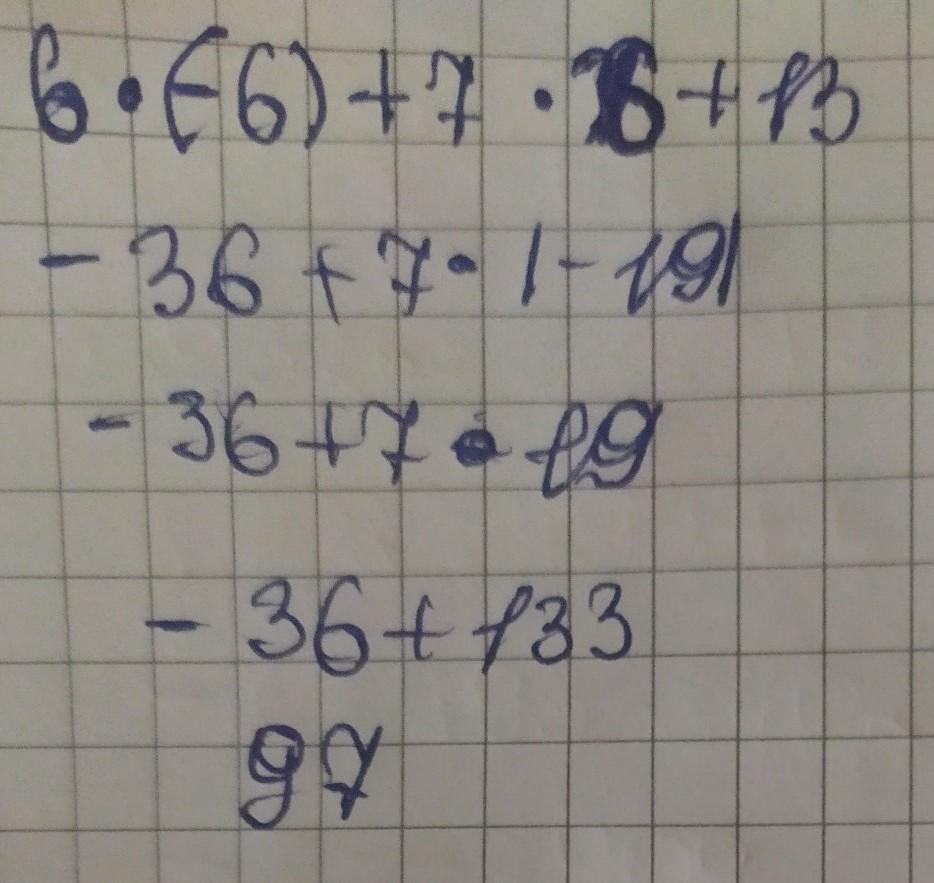 6 · (-6) + 7 · 6 + 13
- 36 + 7 · |- 19|
- 36 + 7 · 19
- 36 + 133
97